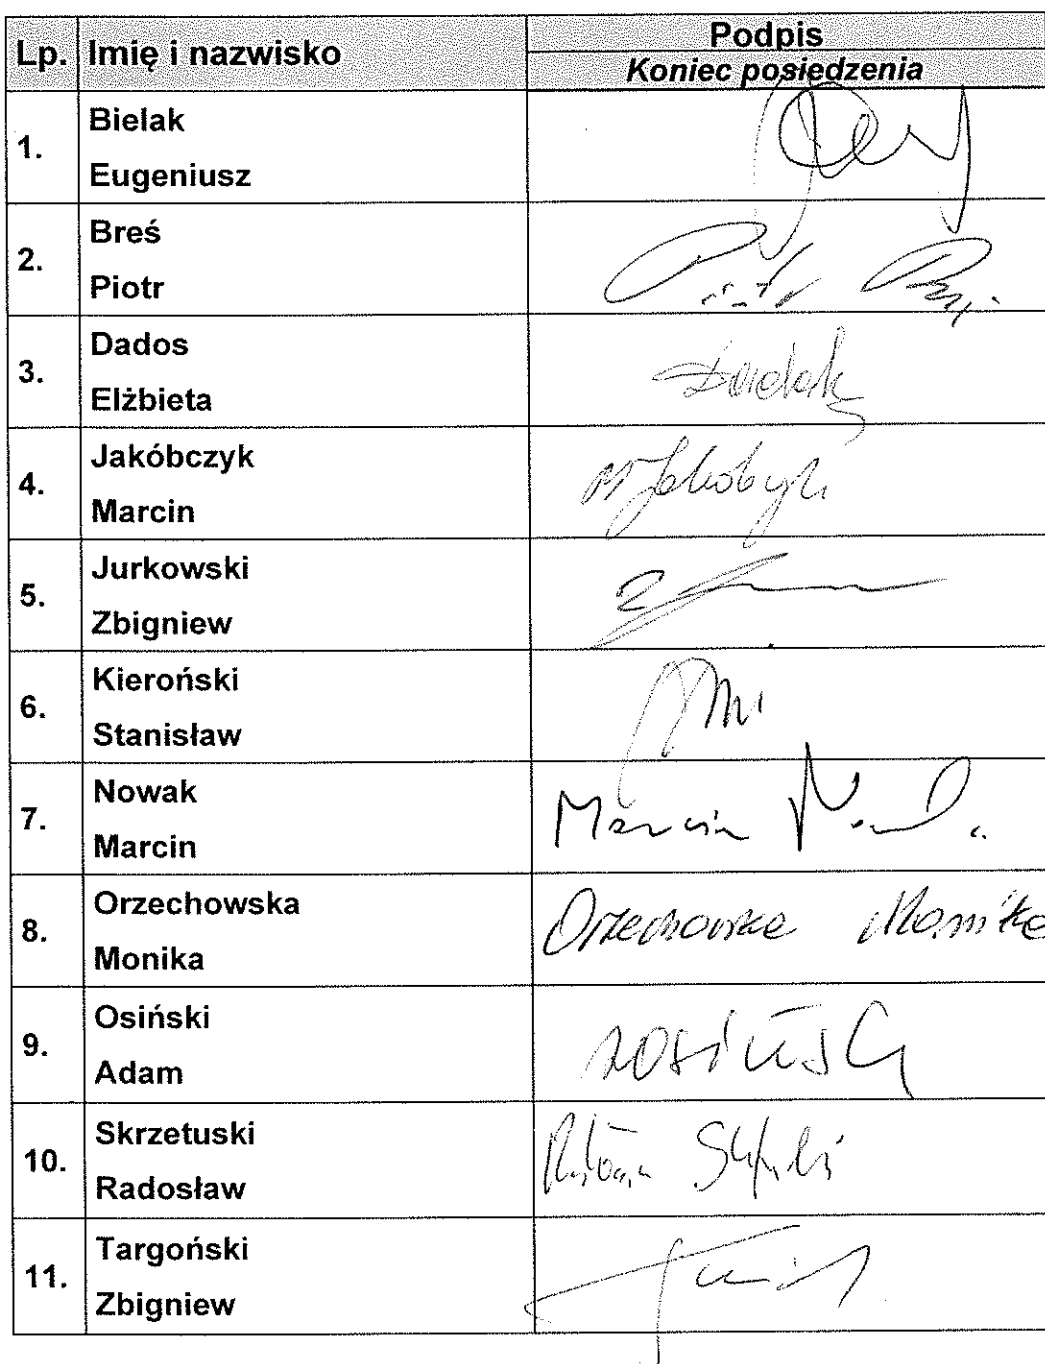 Lp. Imię i nazwisko Podpis
Koniec posiedzenia
1. Bielak
Eugeniusz
2. Breś
Piotr
Piotr
3. Dados
Elżbieta
4. Jakóbczyk
Marcin
5. Jurkowski
Zbigniew
6. Kieroński
Stanisław
7. Nowak
Marcin
Marcin
8. Orzechowska
Monika
Orzechowska Monika
9. Osiński
Adam
10. Skrzetuski
Radosław
11. Targoński
Zbigniew